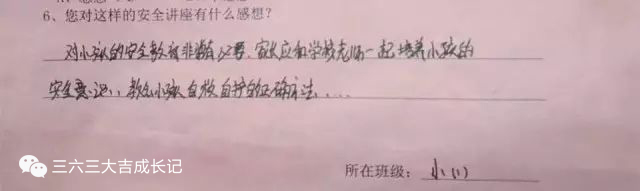 6、您对这样的安全讲座有什么感想?
对小孩的安全教育非常有必要,家长应和学校老师一起培养小孩的
安全意识,教会小孩自救自护的正确方法,...
三六三大吉成长记
所在班级: 小(1)